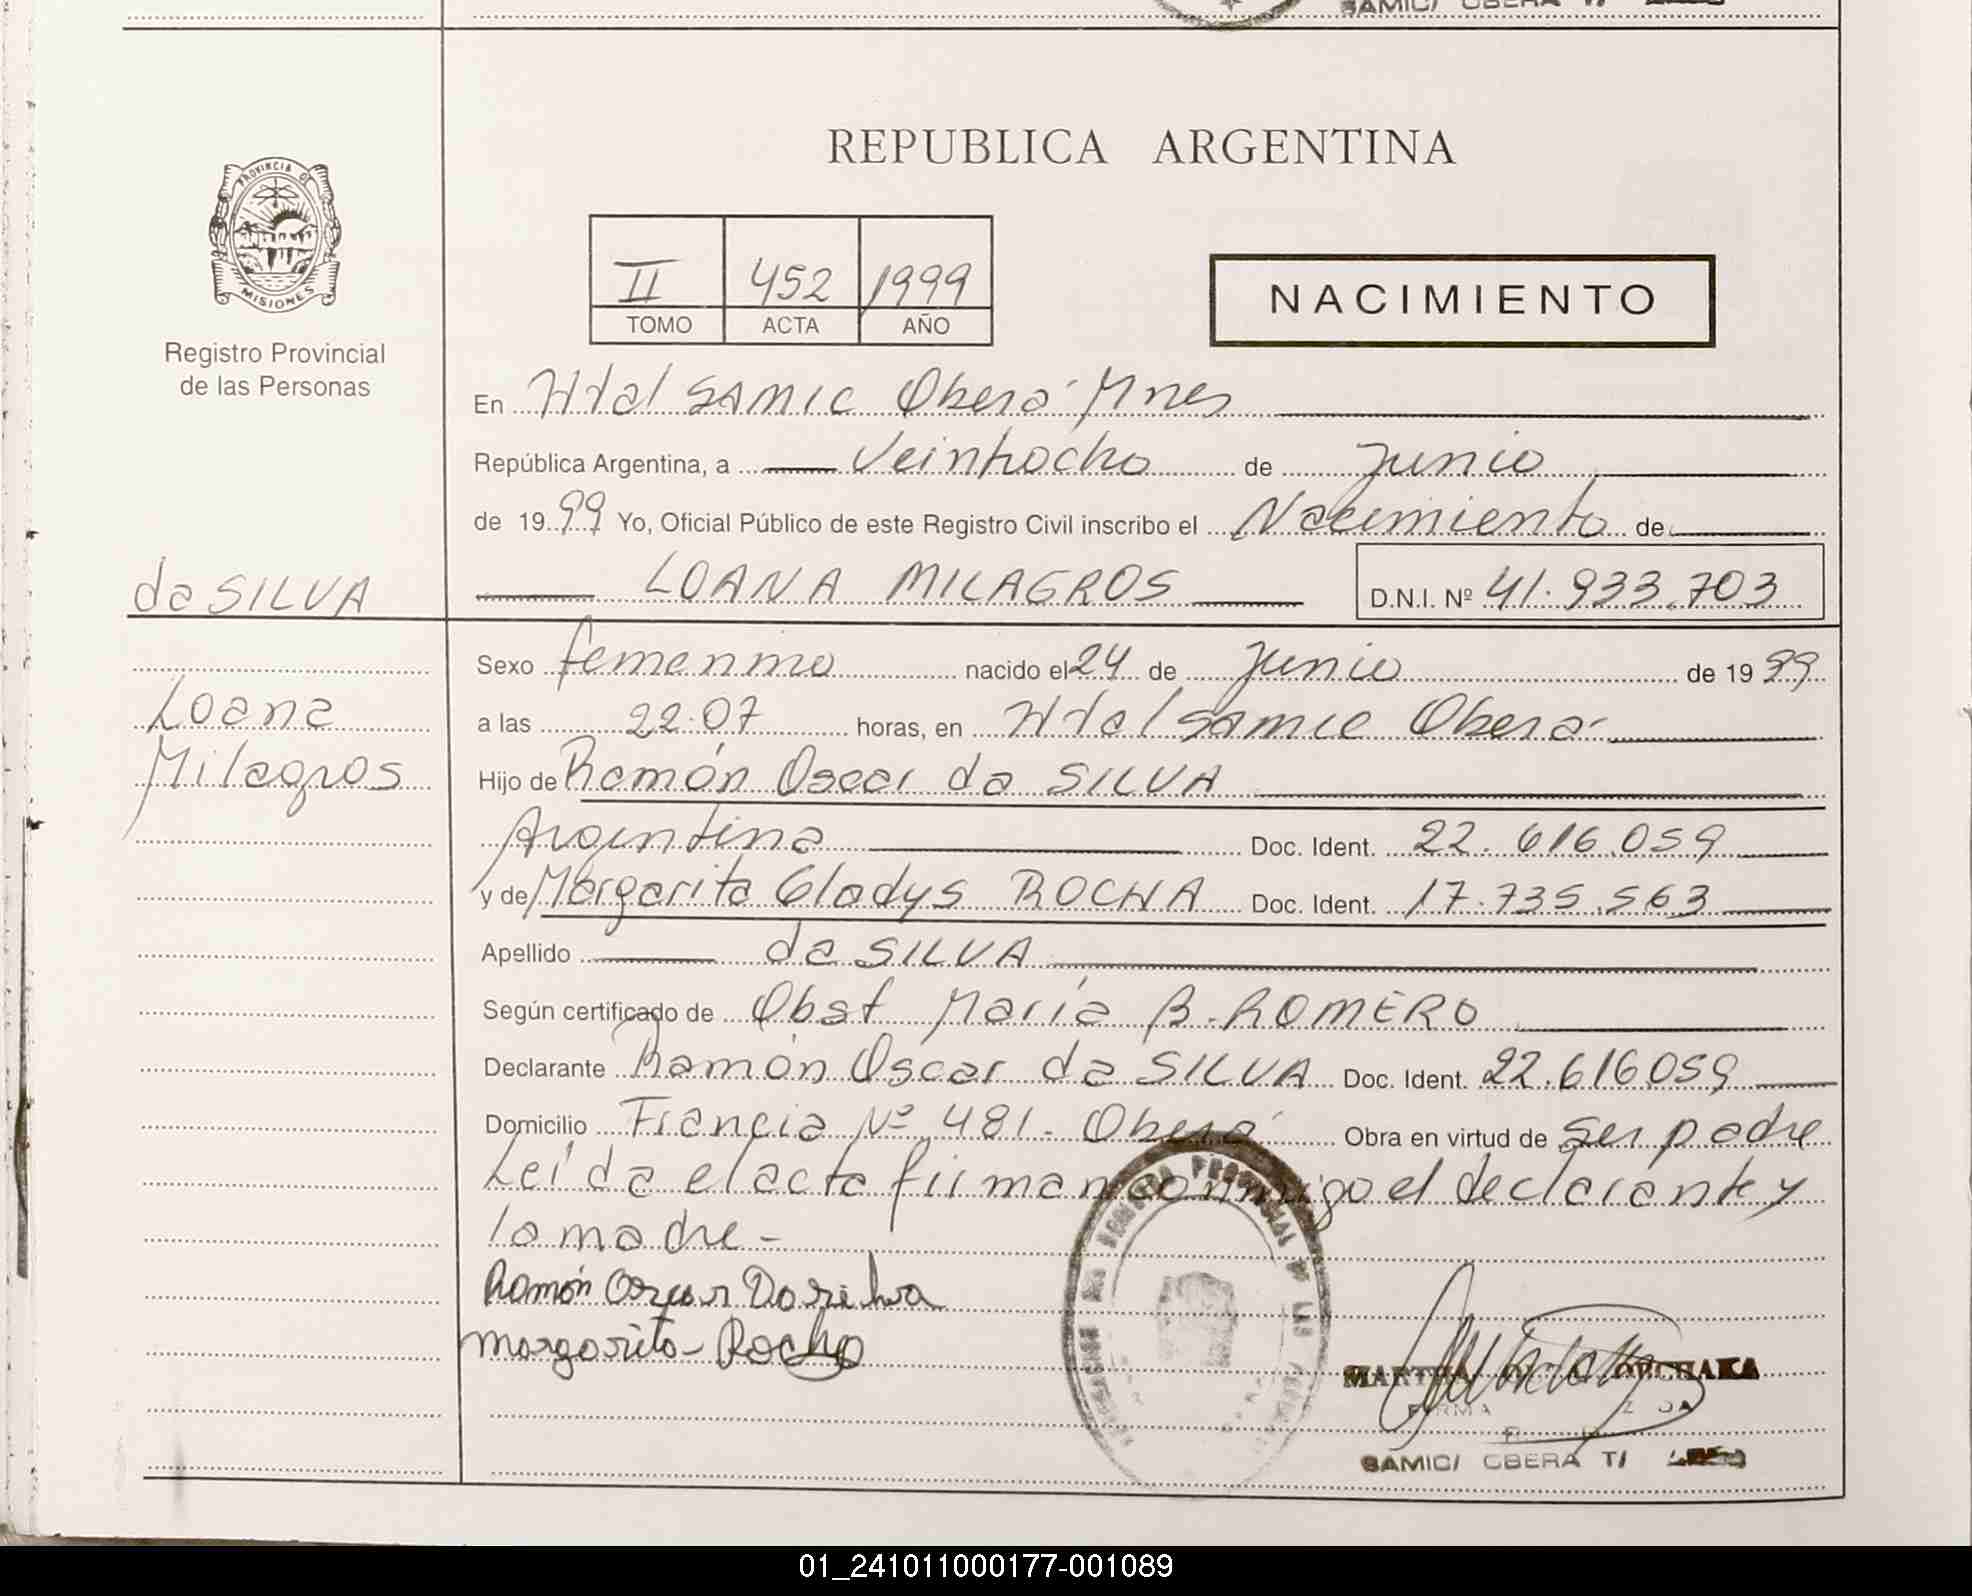 SAMIC/ OBERA T/
REPUBLICA ARGENTINA
PROVINCIA DE
MISIONES
Registro Provincial
de las Personas
II 452 1999
TOMO ACTA AÑO
NACIMIENTO
En Htal SAMIC Oberá Mnes
República Argentina, a Veintiocho de Junio
de 1999 Yo, Oficial Público de este Registro Civil inscribo el Nacimiento de
da SILVA
LOANA MILAGROS D.N.I. Nº 41.933.703
Loana
Milagros
Sexo femenino nacido el 24 de Junio de 1999
a las 22.07 horas, en Htal Samic Oberá
Hijo de Ramón Oscar da SILVA
Argentina Doc. Ident. 22.616.059
y de Margarita Gladys ROCHA Doc. Ident. 17.735.563
Apellido da SILVA
Según certificado de Obst María B. ROMERO
Declarante Ramón Oscar da SILVA Doc. Ident. 22.616059
Domicilio Francia Nº 481. Oberá Obra en virtud de ser padre
Leída el acta firman conmigo el declarante y
la madre -
Ramón Oscar Da silva
margarita Rocha
MARTHA
FIRMA
SAMIC/ OBERA T/
01_241011000177-001089